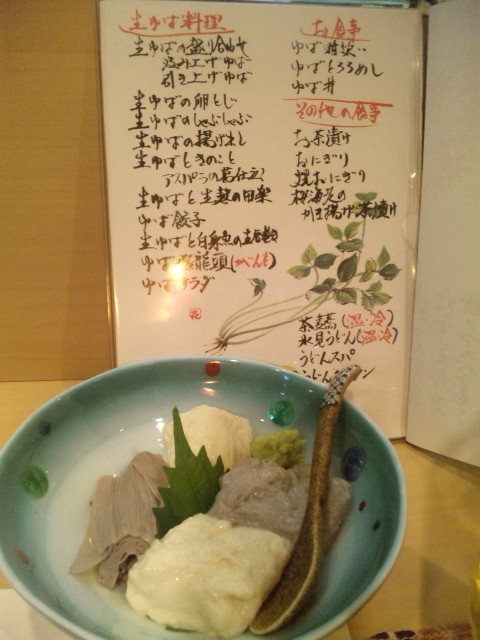 生ゆば料理
生ゆばの盛り合わせ
汲み上げゆば
引き上げゆば
生ゆばの卵とじ
生ゆばのしゃぶしゃぶ
生ゆばの揚げ出し
生ゆばときのこと
アスパラの葛仕立て
生ゆばと生麩の田楽
ゆば餃子
生ゆばと白身魚の
ゆば飛龍頭(がんも)
ゆばサラダ
お食事
ゆば雑炊
ゆばとろろめし
ゆば丼
その他の食事
お茶漬け
おにぎり
焼おにぎり
桜海老の
かき揚げ茶漬け
茶蕎麦(温・冷)
氷見うどん(温・冷)
うどんスパ